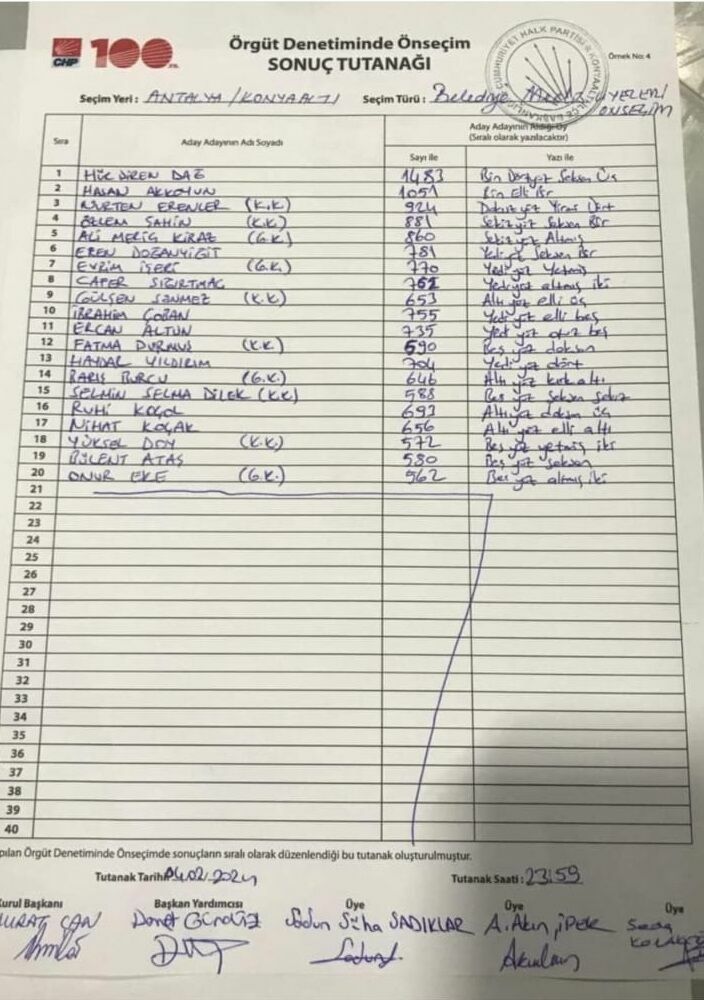 CHP 100 YIL
Örgüt Denetiminde Önseçim
SONUÇ TUTANAĞI
CUMHURİYET HALK PARTİSİ KONYAALTI İLÇE BAŞKANLIĞI
Örnek No: 4
Seçim Yeri : ANTALYA / KONYAALTI Seçim Türü : Belediye Meclis ÜYELERİ ÖNSEÇİM
Sıra Aday Adayının Adı Soyadı Aday Adayının Aldığı Oy
(Sıralı olarak yazılacaktır)
Sayı ile Yazı ile
1 DİREN DAĞ 1483 Bin Dörtyüz Seksen Üç
2 HASAN AKKOYUN 1051 Bin Elli Bir
3 NURTEN ERENLER (K.K) 924 Dokuz yüz Yirmi Dört
4 ÖZLEM ŞAHİN (K.K) 881 Sekiz yüz Seksen Bir
5 ALİ MERİÇ KİRAZ (G.K) 860 Sekiz yüz Altmış
6 EREN DOĞANYİĞİT 781 Yedi yüz Seksen Bir
7 EVRİM İŞERİ (G.K.) 770 Yedi yüz Yetmiş
8 CAFER SIZIRTMAÇ 762 Yedi yüz altmış iki
9 GÜLŞEN SÖNMEZ (K.K) 653 Altı yüz elli üç
10 İBRAHİM ÇOBAN 755 Yedi yüz elli beş
11 ERCAN ALTUN 735 Yedi yüz otuz beş
12 FATMA DURMUŞ (K.K) 590 Beş yüz doksan
13 HAYDAR YILDIRIM 704 Yedi yüz dört
14 BARIŞ BURCU (G.K.) 646 Altı yüz kırk altı
15 SELMİN SELMA DİLEK (K.K) 588 Beş yüz Seksen Sekiz
16 RUHİ KOÇOL 693 Altı yüz doksan üç
17 NİHAT KOÇAK 656 Altı yüz elli altı
18 YÜKSEL DOY (K.K) 572 Beş yüz yetmiş iki
19 BÜLENT ATAŞ 580 Beş yüz seksen
20 ONUR EKE (G.K.) 562 Beş yüz altmış iki
21
22
23
24
25
26
27
28
29
30
31
32
33
34
35
36
37
38
39
40
pılan Örgüt Denetiminde Önseçimde sonuçların sıralı olarak düzenlendiği bu tutanak oluşturulmuştur.
Tutanak Tarihi: 04.02.2024 Tutanak Saati : 23:59
urul Başkanı Başkan Yardımcısı Üye Üye Üye
MURAT CAN Demet GÜNDÜZ Sadun Süha SADIKLAR A. Akın İPEK Seda